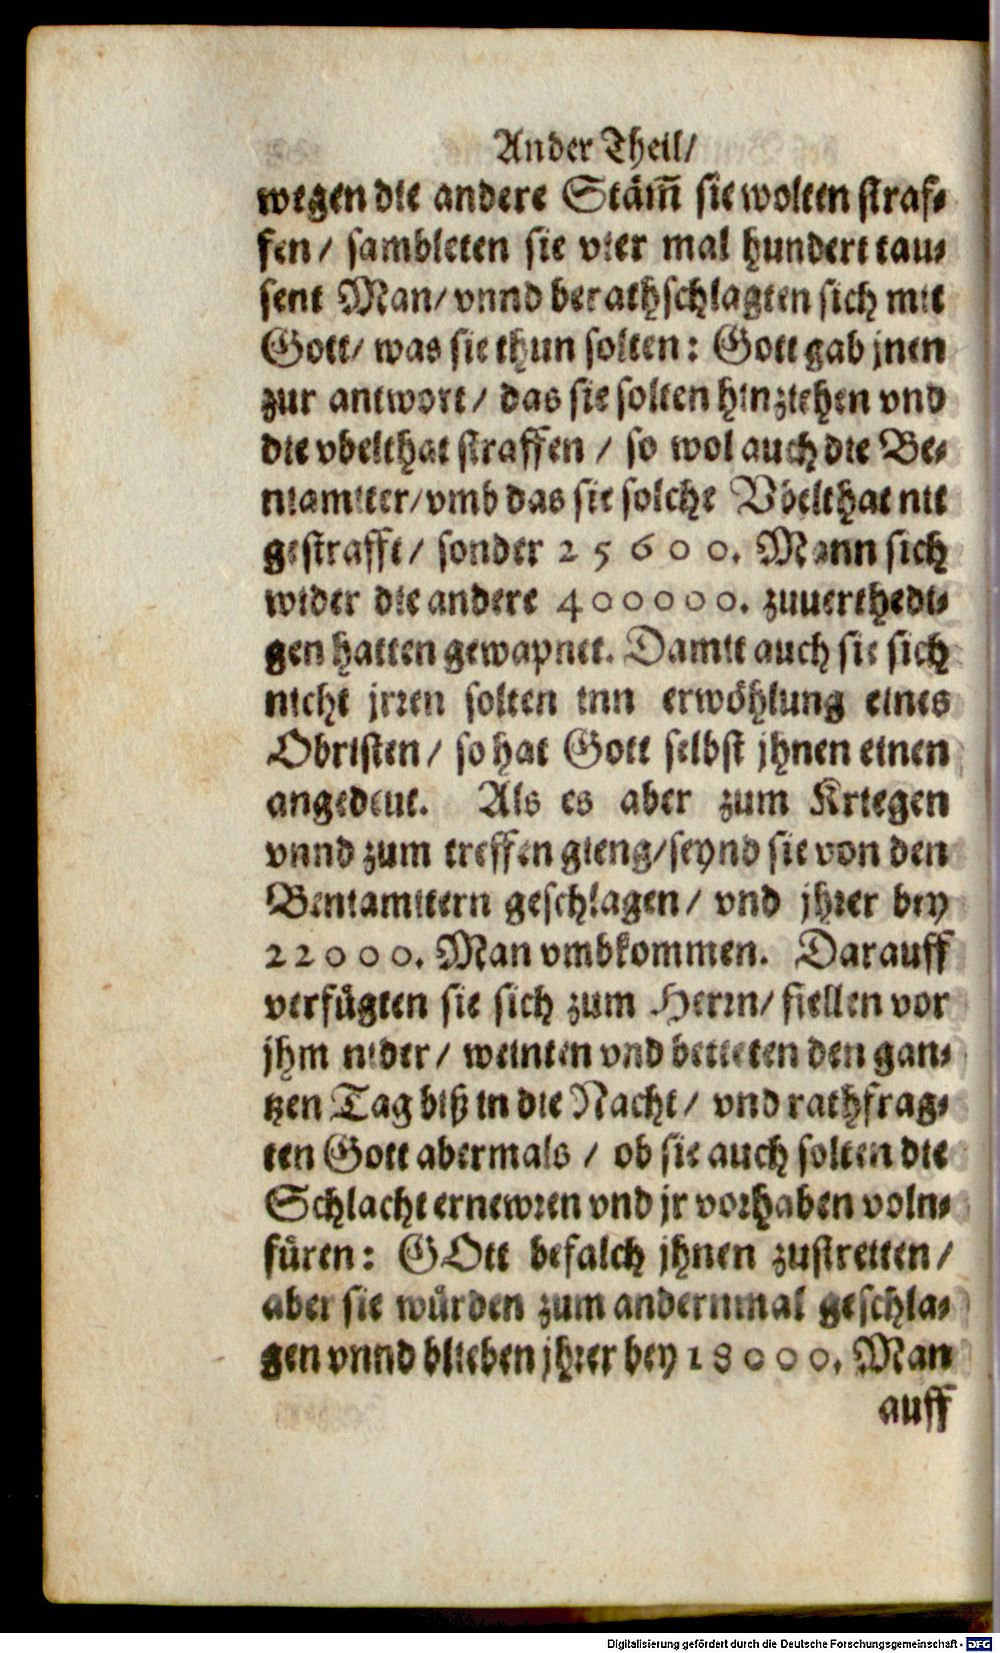 Ander Theil/
wegen die andere Stäm̃ sie wolten straf⸗
fen/ sambleten sie vier mal hundert tau⸗
sent Man/ vnnd berathschlagten sich mit
Gott/ was sie thun solten: Gott gab jnen
zur antwort/ das sie solten hinziehen vnd
die vbelthat straffen / so wol auch die Be⸗
niamiter/ vmb das sie solche Vbelthat nit
gestrafft/ sonder 25600. Mann sich
wider die andere 400000. zuuerthedi⸗
gen hatten gewapnet. Damit auch sie sich
nicht jrren solten inn erwöhlung eines
Obristen/ so hat Gott selbst jhnen einen
angedeut. Als es aber zum Kriegen
vnnd zum treffen gieng/ seynd sie von den
Beniamitern geschlagen/ vnd jhrer bey
22000. Man vmbkommen. Darauff
verfügten sie sich zum Herrn/ fiellen vor
jhm nider/ weinten vnd betteten den gan⸗
tzen Tag biß in die Nacht/ vnd rathfrag⸗
ten Gott abermals / ob sie auch solten die
Schlacht ernewren vnd jr vorhaben voln⸗
füren: GOtt befalch jhnen zustretten/
aber sie würden zum andernmal geschla⸗
gen vnnd blieben jhrer bey 18000. Man
auff
Digitalisierung gefördert durch die Deutsche Forschungsgemeinschaft - DFG